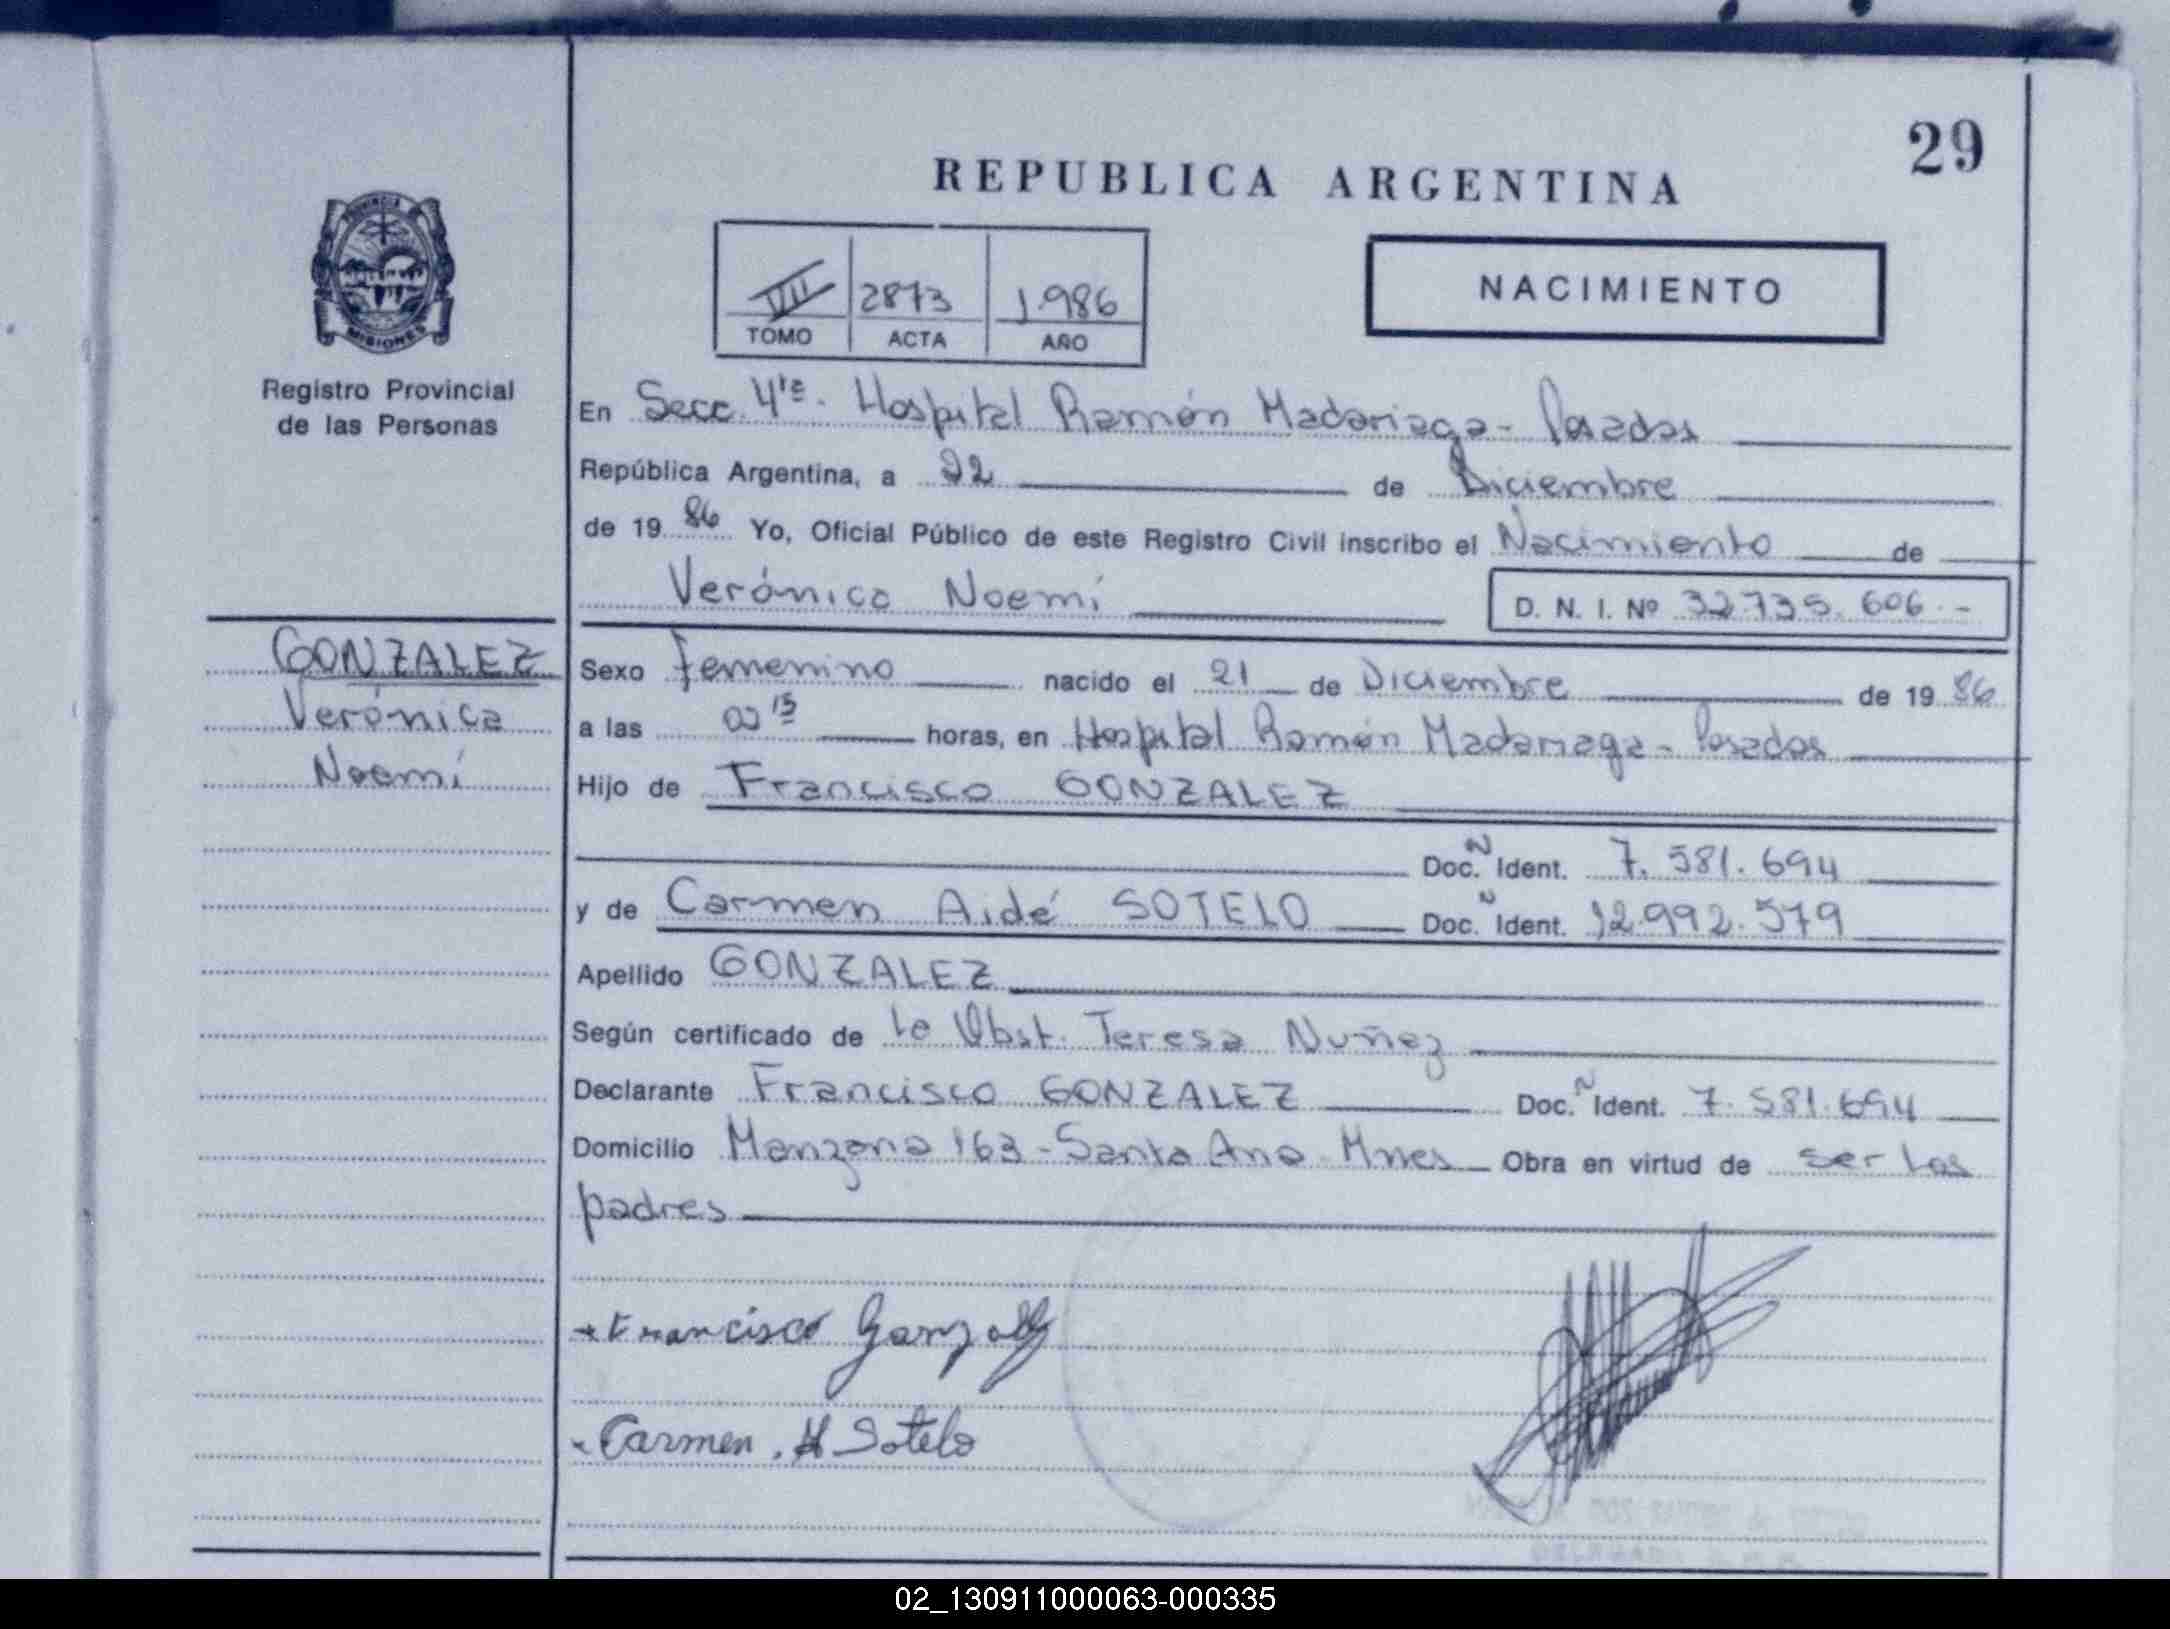 29
REPUBLICA ARGENTINA
VII 2873 1.986
TOMO ACTA AÑO
NACIMIENTO
PROVINCIA DE
MISIONES
Registro Provincial
de las Personas
En Secc. 4ta. Hospital Ramón Madariaga - Posadas
República Argentina, a 22 de Diciembre
de 19 86 Yo, Oficial Público de este Registro Civil inscribo el Nacimiento de
Verónica Noemí D. N. I. Nº 32.735.606.-
GONZALEZ
Verónica
Noemí
Sexo femenino nacido el 21 de Diciembre de 19 86
a las 02 15 horas, en Hospital Ramón Madariaga - Posadas
Hijo de Francisco GONZALEZ
Doc. N Ident. 7.581.694
y de Carmen Aidé SOTELO Doc. N Ident. 12.992.579
Apellido GONZALEZ
Según certificado de la Obst. Teresa Nuñez
Declarante Francisco GONZALEZ Doc. N Ident. 7.581.694
Domicilio Manzana 163 - Santa Ana - Mnes Obra en virtud de ser los
padres
Francisco Gonzalez
Carmen. H Sotelo
02_130911000063-000335